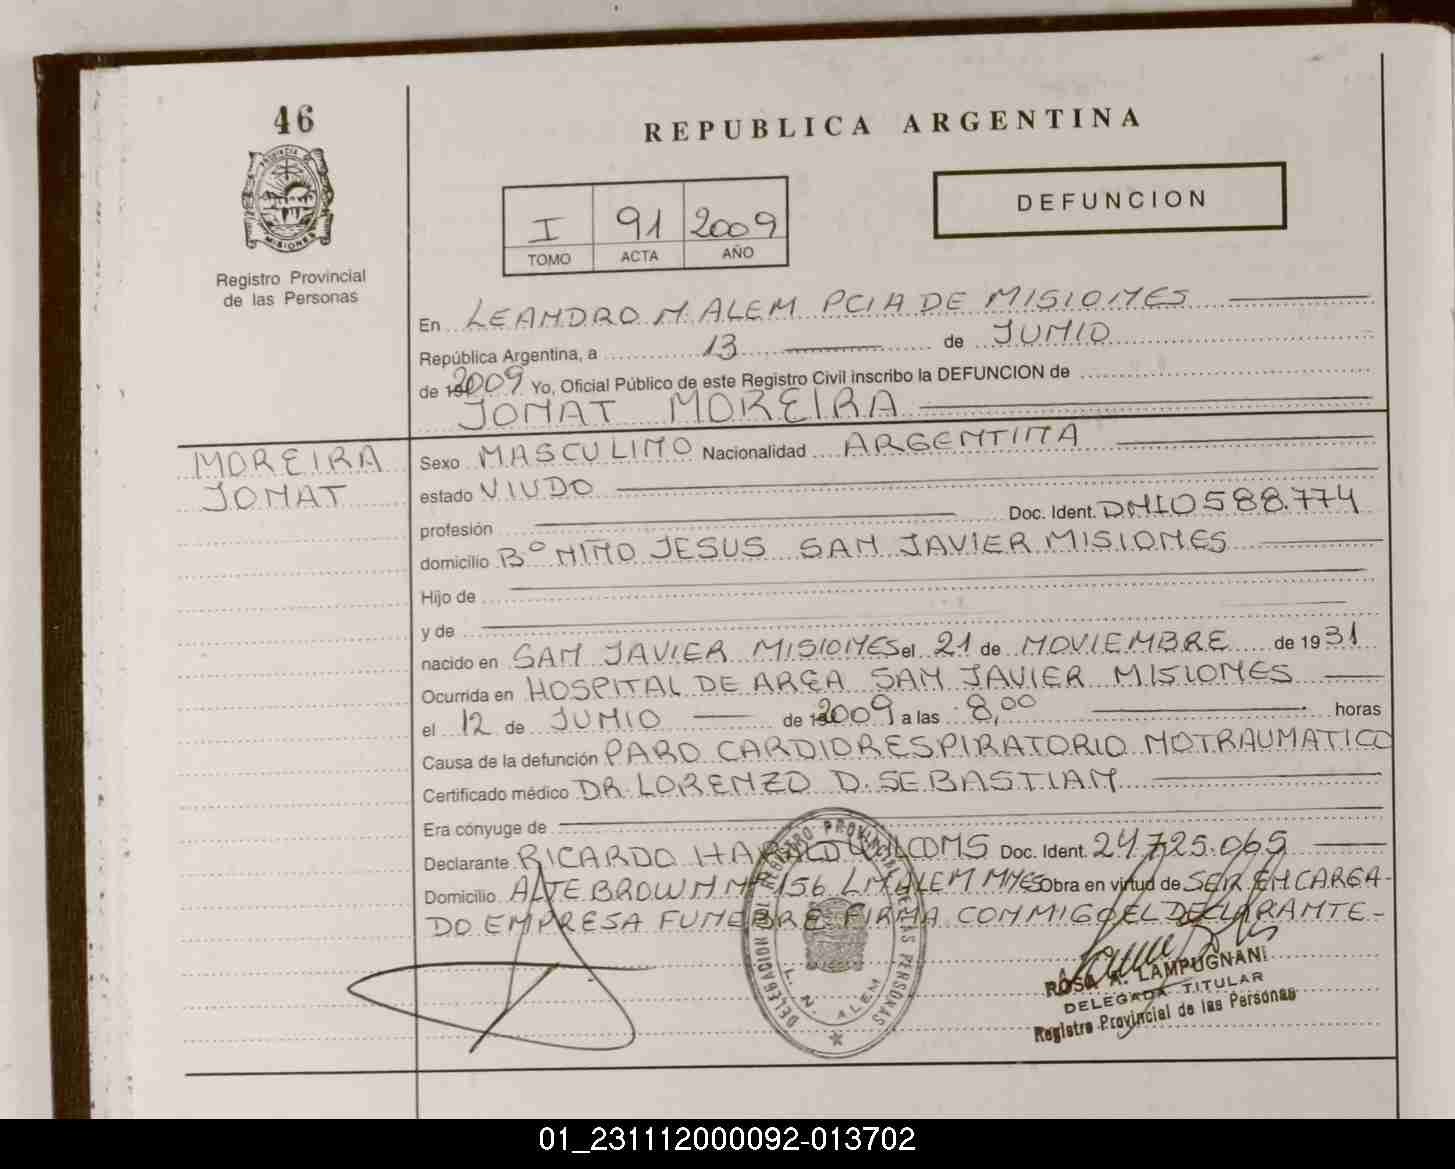 46
PROVINCIA DE
MISIONES
Registro Provincial
de las Personas
REPUBLICA ARGENTINA
DEFUNCION
I 91 2009
TOMO ACTA AÑO
En LEANDRO N. ALEM PCIA DE MISIONES
República Argentina, a 13 de JUNIO
de 2009 Yo, Oficial Público de este Registro Civil inscribo la DEFUNCION de
JONAT MOREIRA
MOREIRA
JONAT
Sexo MASCULINO Nacionalidad ARGENTINA
estado VIUDO
profesión Doc. Ident. DNI 0588.774
domicilio Bº NIÑO JESUS SAN JAVIER MISIONES
Hijo de
y de
nacido en SAN JAVIER MISIONES el 21 de NOVIEMBRE de 1931
Ocurrida en HOSPITAL DE AREA SAN JAVIER MISIONES
el 12 de JUNIO de 2009 a las 8,00 horas
Causa de la defunción PARO CARDIORESPIRATORIO NO TRAUMATICO
Certificado médico DR. LORENZO D. SEBASTIAN
Era cónyuge de
Declarante RICARDO Doc. Ident. 24.725.065
Domicilio ALTE BROWN Nº 156 L N ALEM MNES Obra en virtud de SER ENCARGA-
DO EMPRESA FUNEBRE FIRMA CONMIGO EL DECLARANTE-
DELEGACION REGISTRO PROVINCIAL DE LAS PERSONAS
L. N. ALEM
ROSA A. LAMPUGNANI
DELEGADA TITULAR
Registro Provincial de las Personas
01_231112000092-013702